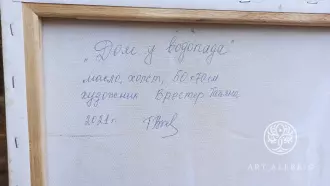 „Дом у водопада"
масло, холст, 50×70см
художник Бростер Татьяна
2021г.
ART ALEBRIO